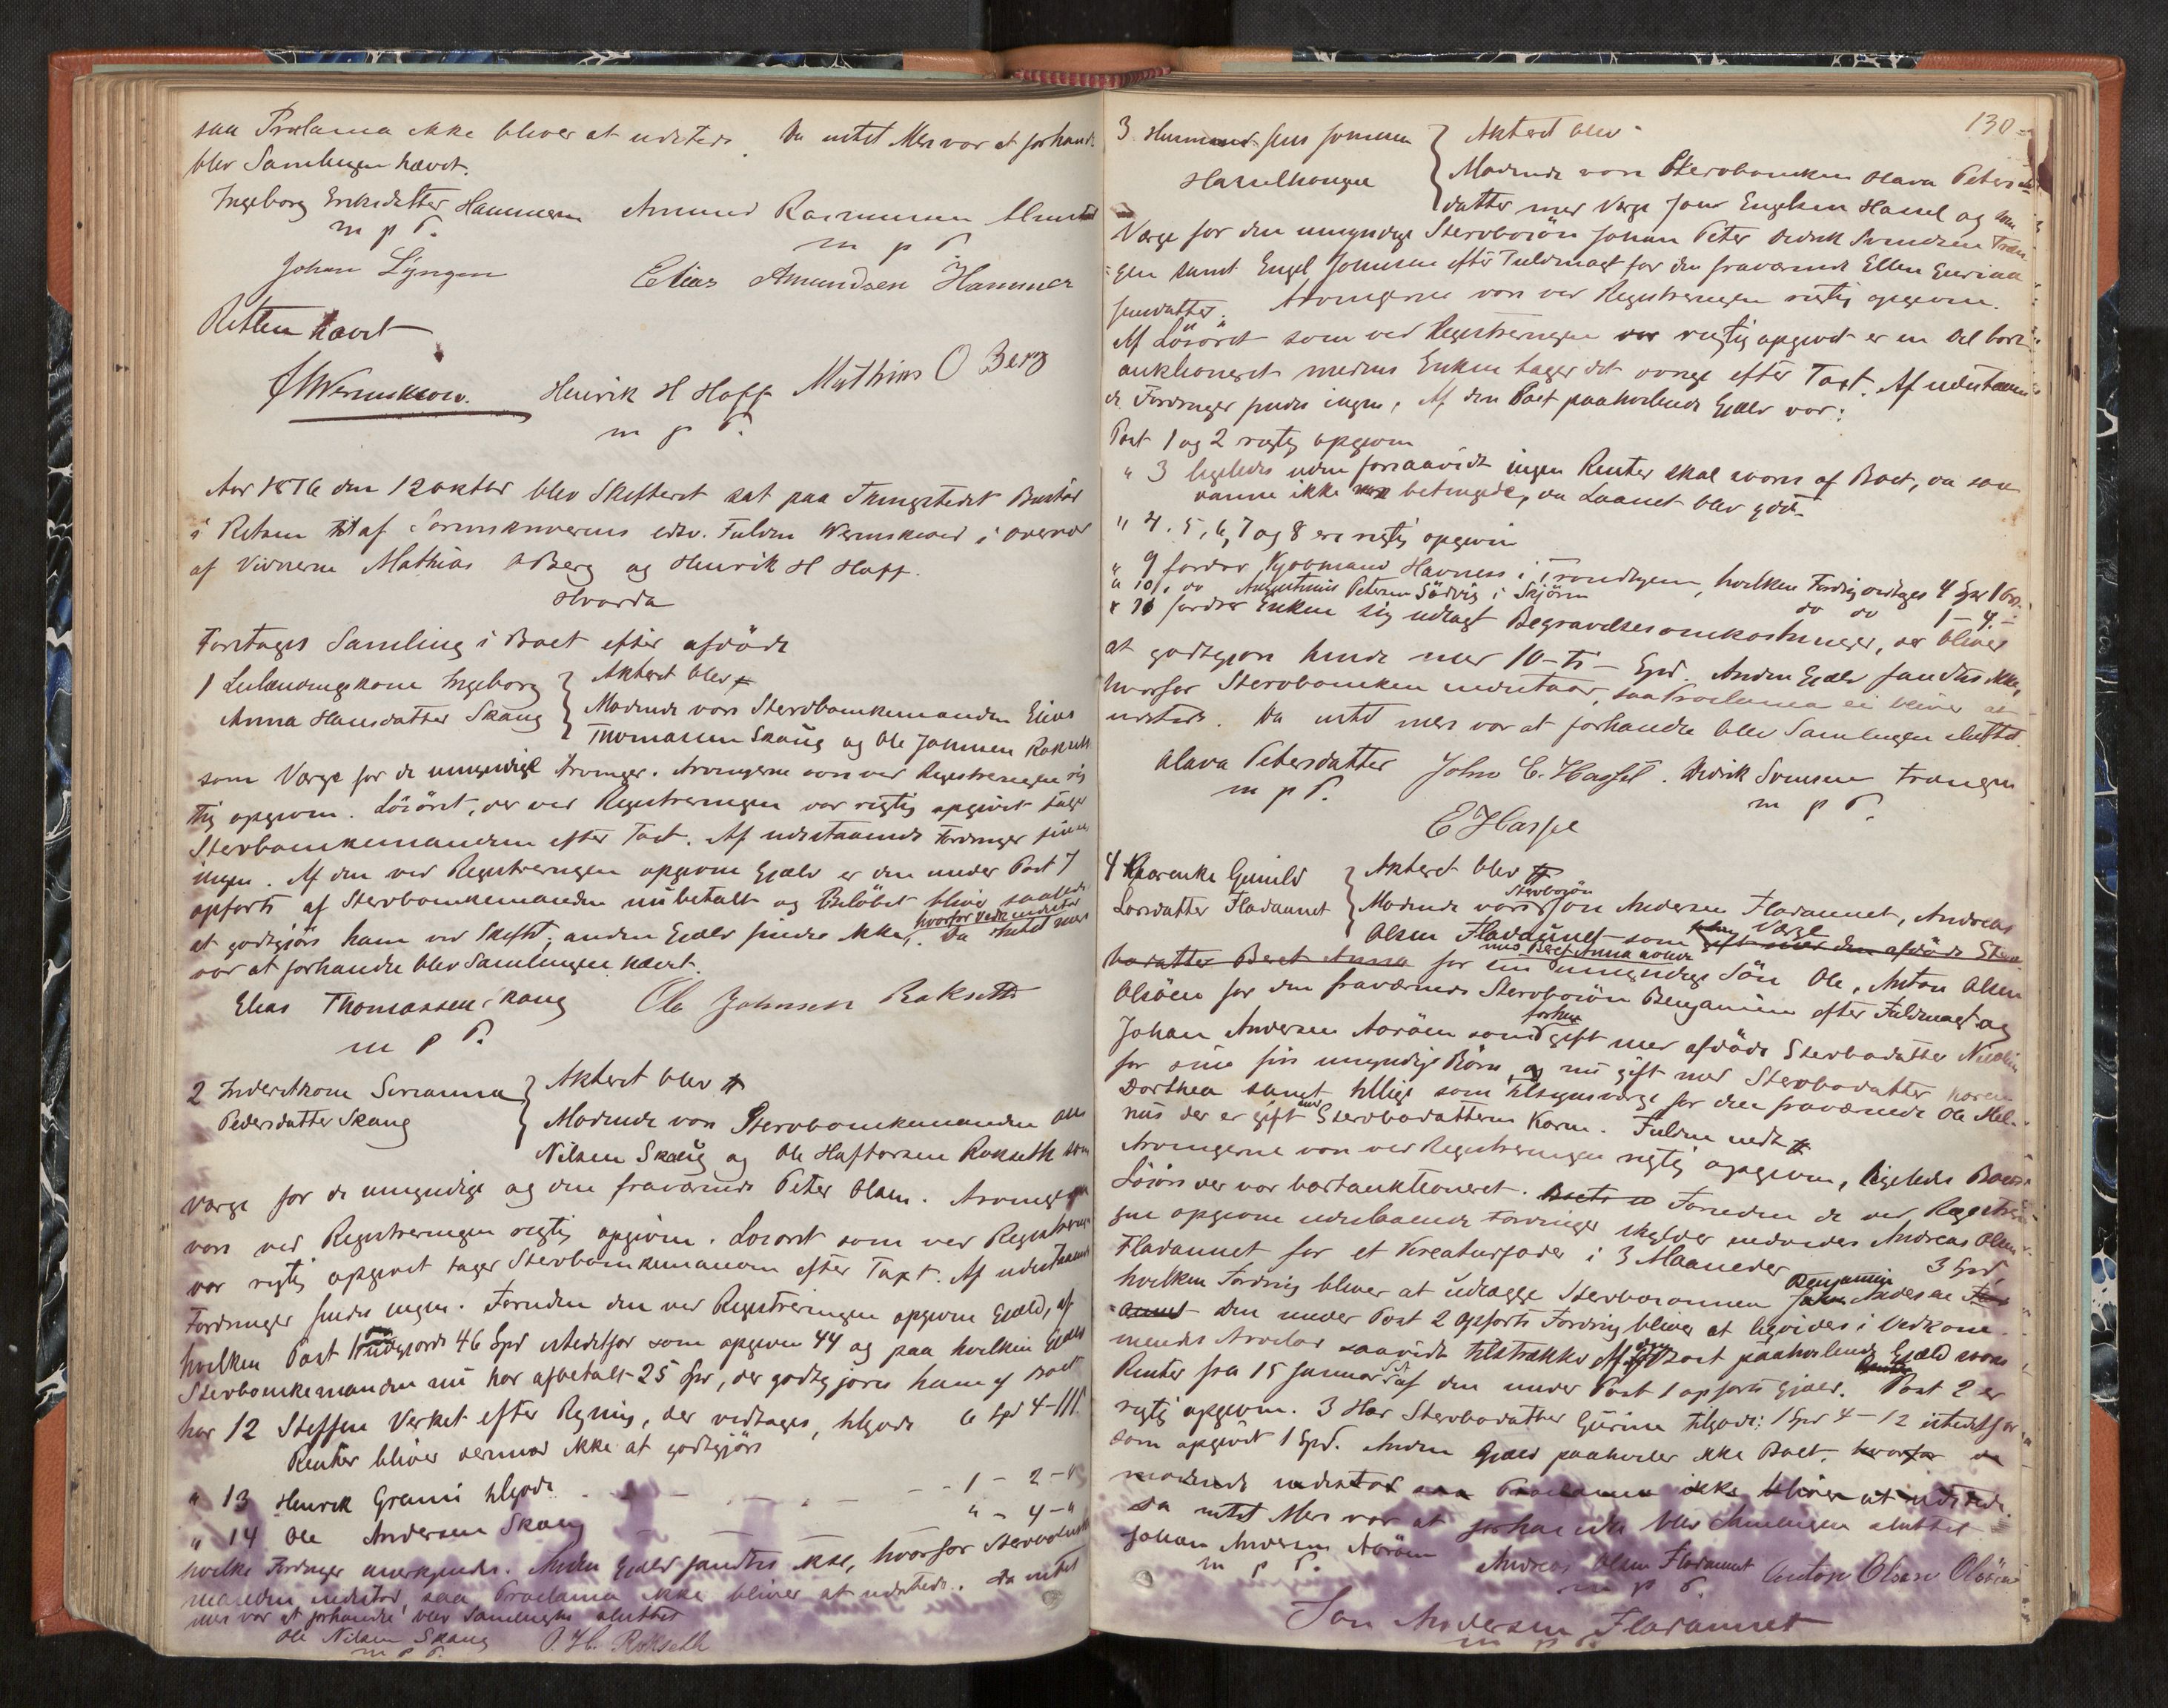 saa Proclama ikke bliver at udstede. Da intet Mere var at forhandle
blev Samlingen hævet.
Ingeborg Eriksdatter Hammeren Amund Rasmussen
m p P. m p P.
Johan Lyngen Elias Amundsen Hammer
Retten hævet
Wernskiold. Henrik H Hoff Mathias O Berg
m p P.
Aar 1876 den 12 oktbr blev Skifteret sat paa Thingstedet
i Retten af Sorenskriverens edsv. Fuldm Wernskiold i overvær
af Vidnerne Mathias O Berg og Henrik H Hoff.
Hvorda
Foretages Samling i Boet efter afdöde
1 Leilændingskone Ingeborg Akteret blev
Anna Hansdatter Skaug Mødende vare Stervboenkemanden Elias
Thomassen Skaug og Ole Johnsen Rokseth
som Værge for de umyndige Arvinger. Arvingerne vare ved Registreringen rig
tig opgivne. Lösöret, der ved Registreringen var rigtig opgivet tager
Stervboenkemanden efter Taxt. Af udestaaende Fordringer findes
ingen. Af den ved Registreringen opgivne Gjæld er den under Post 7
opförte af Stervboenkemanden nu betalt og Belöbet bliver saaledes
at godtgjöre ham ved Skiftet; anden Gjæld findes ikke, hvorfor Vedk indestaar. Da intet mere
var at forhandle blev Samlingen hævet.
Elias Thomassen Skaug Ole Johnsen Rokseth
m p P.
2 Inderstkone Serianna Akteret blev
Pedersdatter Skaug Mødende vare Stervboenkemanden Ole
Nilsen Skaug og Ole Haftorsen Rokseth som
Værge for de umyndige og den fraværende Peter Olsen. Arvingerne
vare ved Registreringen rigtig opgivne. Lösöret som ved Registreringen
var rigtig opgivet tager Stervboenkemanden efter Taxt. Af udestaaende
Fordringer findes ingen. Foruden den ved Registreringen opgivne Gjæld, af
hvilken Post 1 udgjorde 46 Spd istedetfor som opgivet 44 og paa hvilken Gjæld
Stervboenkemanden nu har afbetalt 25 Spd, der godtgjöres ham af Boet
har 12 Steffen Verket efter Regning, der vedtages, tilgode 6 Spd 4-
Renter bliver dermod ikke at godtgjöre
" 13 Henrik Grami tilgode - - - - 1 - 2 -
" 14 Ole Andersen Skaug - - " - 4 - "
hvilke Fordringer anerkjendes. Anden Gjæld fandtes ikke, hvorfor Stervboenke
manden indestod, saa Proclama ikke bliver at udstede. Da intet
mere var at forhandle blev Samlingen sluttet
Ole Nilsen Skaug O. H. Rokseth
m p P.
130
3. Husmand Jens Jonsen Akteret blev
Hasselhougen Mødende vare Stervboenken Olava Peters
datter med Værge Jons Engelsen Hassel og som
Værge for den umyndige Stervbosön Johan Peter Didrik Svendsen Tran
gen samt Engel Johnsen efter Fuldmagt for den fraværende Ellen Gurine
Jensdatter. Arvingerne vare ved Registreringen rigtig opgivne.
Af Lösöret som ved Registreringen var rigtig opgivet er en Del bort
auktioneret medens Enken tager det övrige efter Taxt. Af udestaaen
de Fordringer findes ingen. Af den Boet paahvilende Gjæld var:
Post 1 og 2 rigtig opgivne
" 3 ligeledes uden forsaavidt ingen Renter skal svares af Boet, da saa
danne ikke betingede, da Laanet blev gjort
" 4. 5, 6, 7 og 8 ere rigtig opgivne
" 9 fordrer Kjøbmand Havness i Trondhjem, hvilken Fordring vedtages 4 Spd
" 10, do Augustinus Petersen Södvig i Skjörn do do 1 - 4. -
" 11 fordrer Enken sig udlagt Begravelsesomkostninger, der bliver
at godtgjøre hende med 10-ti- Spd. Anden Gjæld fandtes ikke,
hvorfor Stervboenken indestaar, saa Proclama ei bliver at
udstede. Da intet mere var at forhandle blev Samlingen sluttet.
Olava Petersdatter John E. Hassel. Didrik Svensen Trangen
m p P. m p P.
E Hassel
4 Kaarenke Gunild Akteret blev
Larsdatter Fladaunet Mødende vare Stervbosön Jon Andersen Fladaunet, Andreas
Olsen Fladaunet som Værge gift med den afdöde Sterv
bodatter Beret Anna for sin med Beret Anna umyndige Sön Ole, Anton Olsen
Olsöen for den fraværende Stervbosön Benjamin efter Fuldmagt og
Johan Andersen Aaröen som forhen gift med afdöde Stervbodatter
for sine fire umyndige Börn og nu gift med Stervbodatter Karen
Dorthea samt tillige som Tilsynsværge for den fraværende Ole
nus der er gift med Stervbodatteren Karen. Fuldm vedt
Arvingerne vare ved Registreringen rigtig opgivne, ligeledes Boets
Lösöre der var bortauktioneret. Foruden de ved Registrerin
gen opgivne udestaaende Fordringer skylder endvidere Andreas Olsen
Fladaunet for et Kreaturfoder i 3 Maaneder 3 Spd,
hvilken Fordring bliver at udlægge Stervbosønnen Benjamin Andersen
den under Post 2 opförte Fordring bliver at ligvidere i Vedkom
mendes Arvelod saavidt tilstrækker Af den Boet paahvilende Gjæld svares
Renter fra 15 Januar af den under Post 1 opförte Gjæld. Post 2 er
rigtig opgivne. 3 Har Stervbodatter Gurine tilgode: 1 Spd 4-12 istedetfor
som opgivet 1 Spd. Anden Gjæld paahviler ikke Boet. hvorfor de
mødende indestod saa Proclama ikke bliver at udstede
Da intet Mere var at forhandle blev Samlingen sluttet
Johan Andersen Aaröen Andreas Olsen Fladaunet Anton Olsen Olsöen
m p P. m p P.
Jon Andersen Fladaunet
m p P.